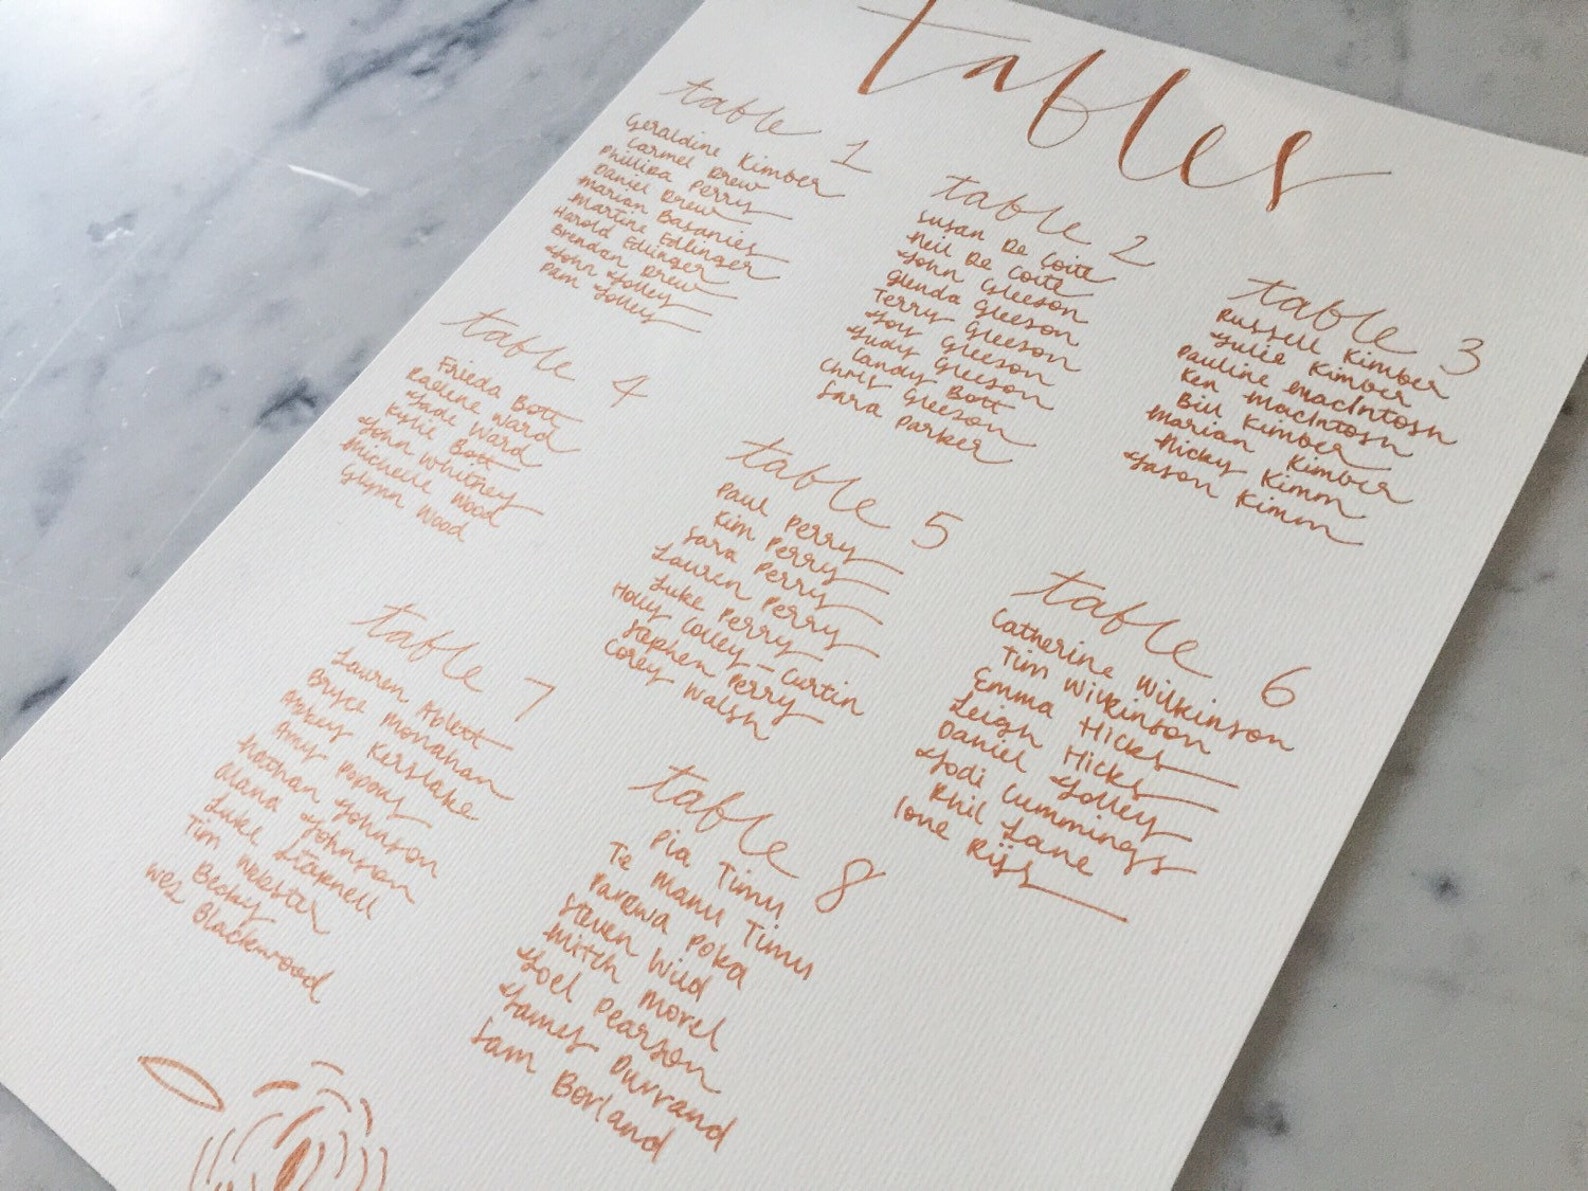 tables
table 1
Geraldine Kimber
Carmel Drew
Phillipa Perry
Daniel Drew
Marian Basanies
Martine Edlinger
Harold Edlinger
Brendan Drew
John Jolley
Pam Jolley
table 2
Susan De Coite
Neil De Coite
John Gleeson
Glenda Gleeson
Terry Gleeson
Joy Gleeson
Judy Gleeson
Candy Bott
Chris Gleeson
Sara Parker
table 3
Russell Kimber
Julie Kimber
Pauline MacIntosh
Ken MacIntosh
Bill Kimber
Marian Kimber
Nicky Kimm
Jason Kimm
table 4
Frieda Bott
Raelene Ward
Jade Ward
Kylie Bott
John Whitney
Michelle Wood
Glynn Wood
table 5
Paul Perry
Kim Perry
Sara Perry
Lauren Perry
Luke Perry
Holly Colley-Curtin
Stephen Perry
Corey Walsh
table 6
Catherine Wilkinson
Tim Wilkinson
Emma Hicks
Leigh Hicks
Daniel Jolley
Jodi Cummings
Phil Lane
Ione Rijs
table 7
Lauren Ablett
Bryce Monahan
Abbey Kerslake
Amy Popous
Nathan Johnson
Alana Johnson
Luke Stapnell
Tim Webster
Becky
Wes Blackwood
table 8
Pia Timu
Te Manu Timu
Parewa Poka
Steven Wild
Mitch Morel
Joel Pearson
James Durrand
Sam Borland